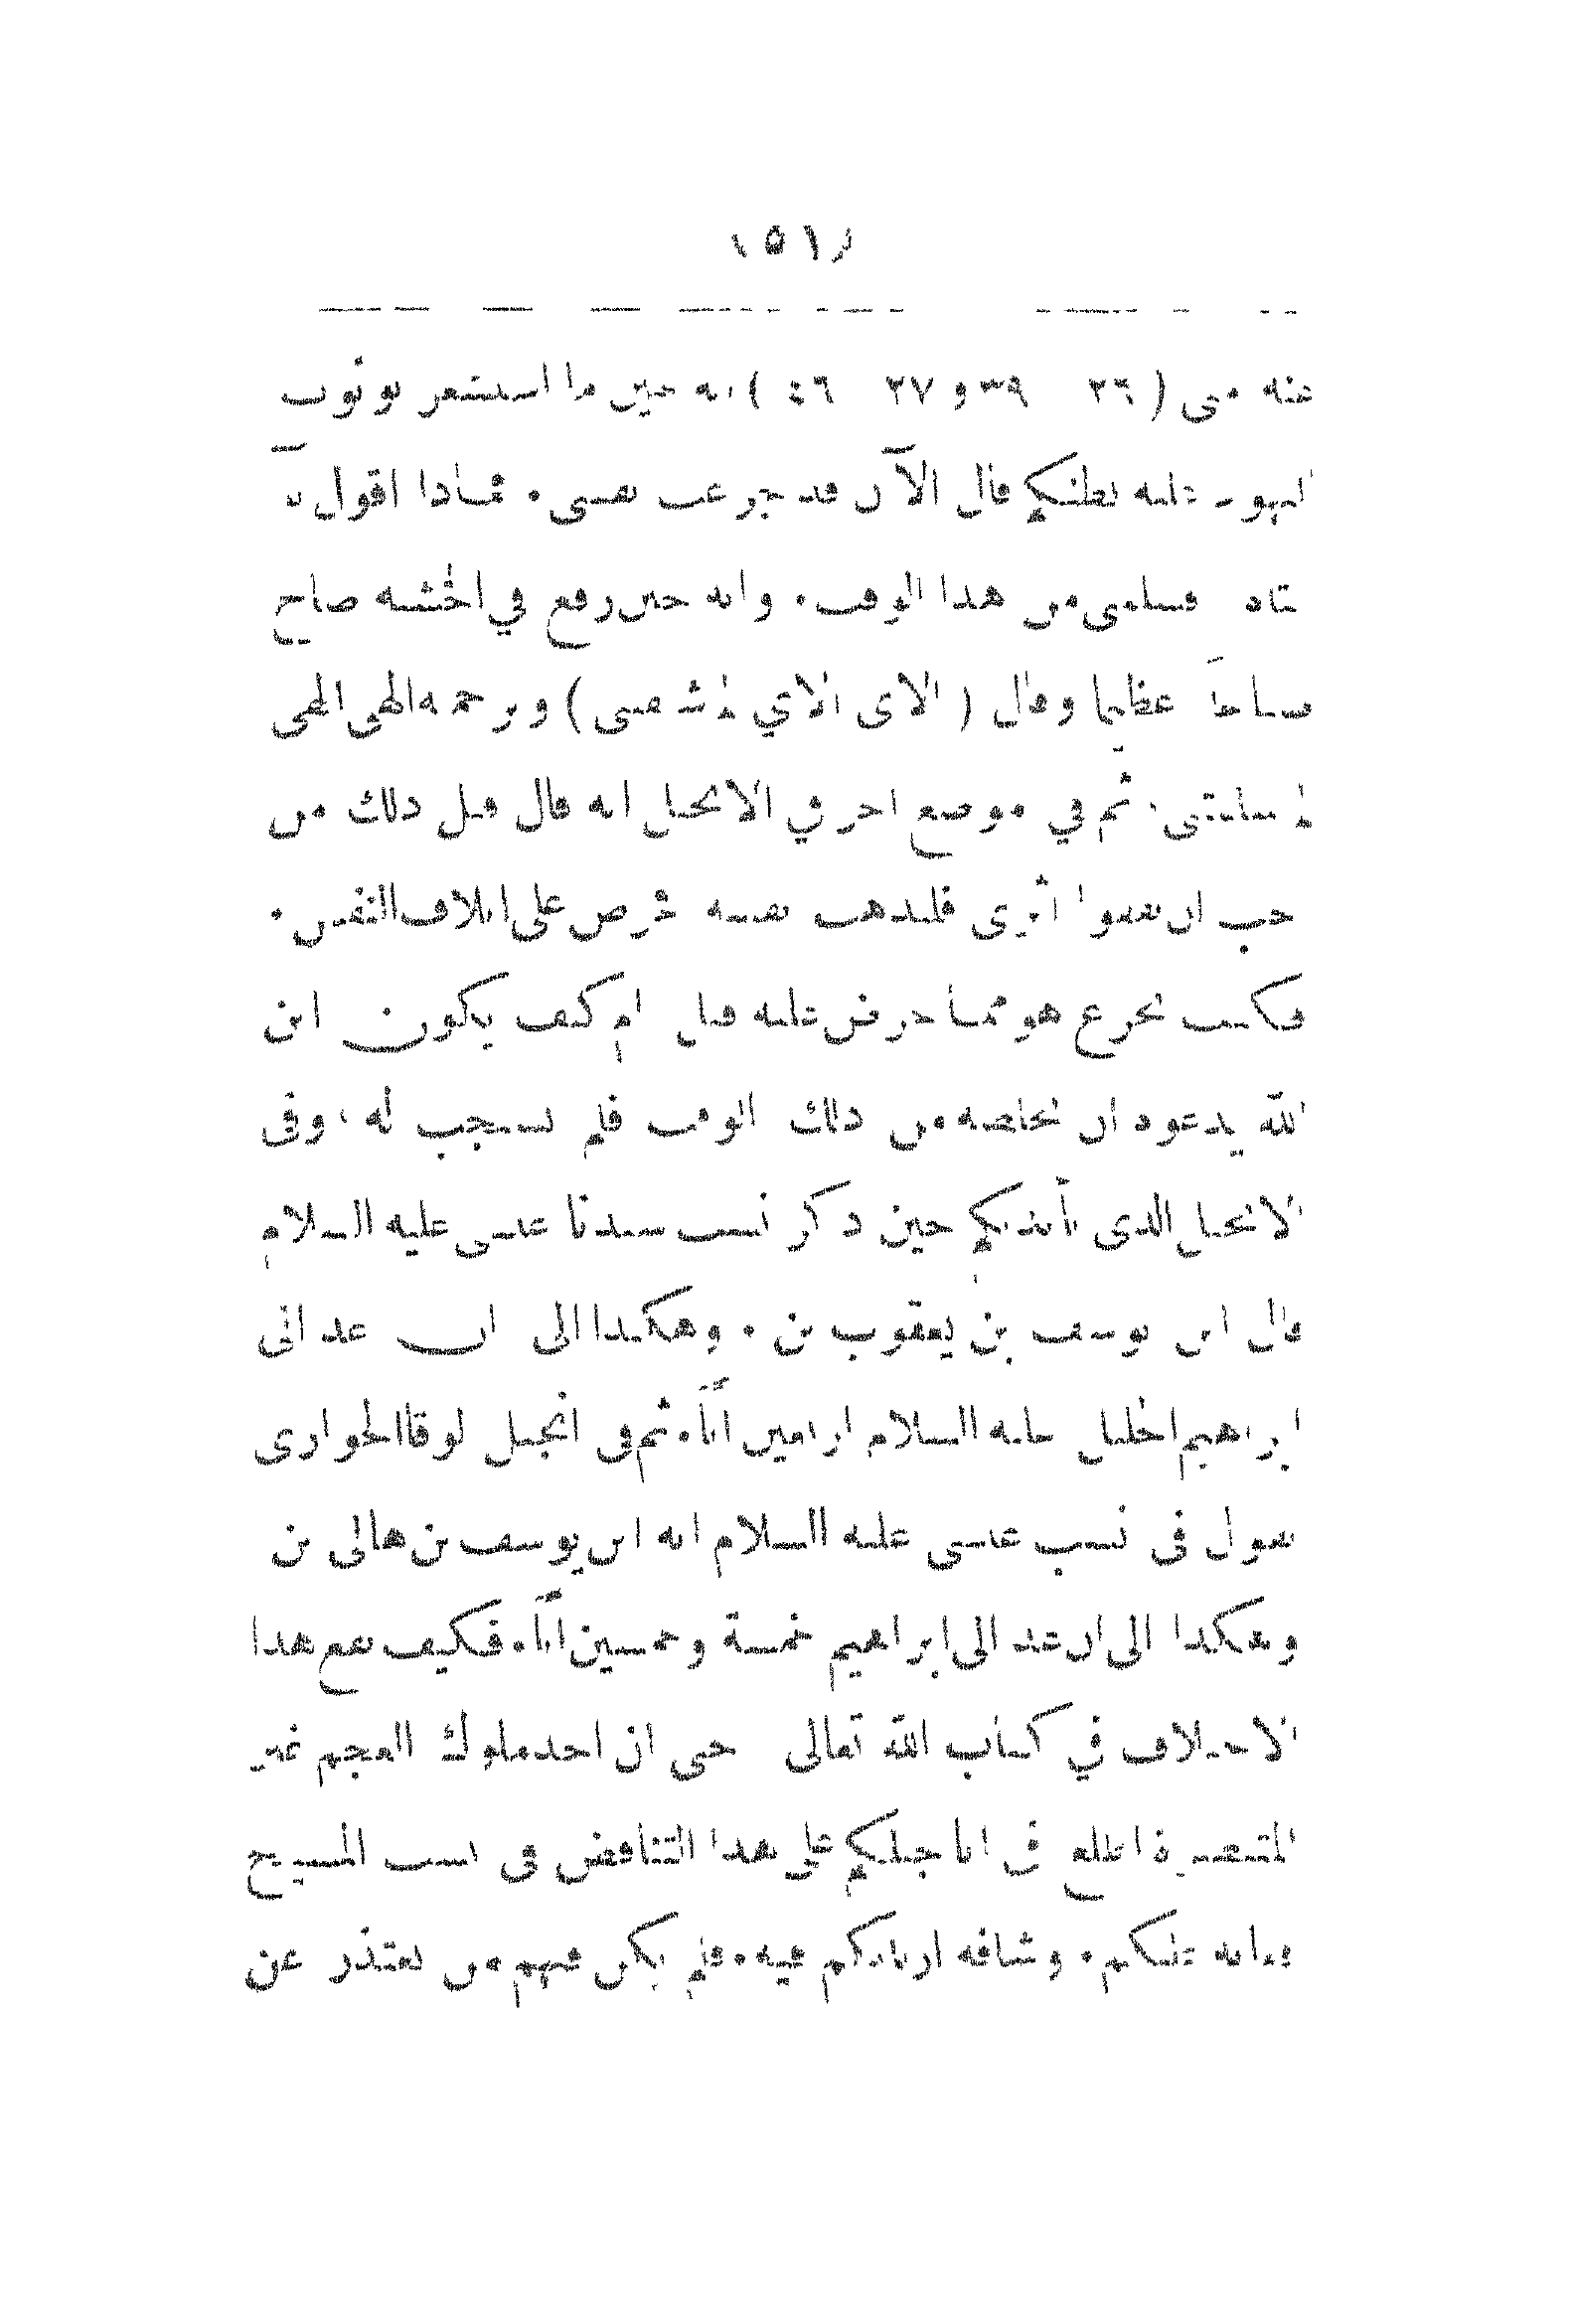 (٥١)
عنه متى (٢٦ ٣٩ و ٢٧ ٤٦) انه حين ما استشعر بوثوب
اليهود عليه بظنكم قال الآن قد جزعت نفسى . فماذا اقول يا
ابتاه فسلمنى من هذا الوقت . وانه حين رفع في الخشبة صاح
صياحا عظيما وقال (الاى الاي شبقتنى) وترجمته الهى الهى
لم اسلمتنى . ثم في موضع اخر في الانجيل انه قال قبل ذلك من
احب ان يقفوا اثرى فليذهب نفسه فحرص على اتلاف النفس .
فكيف يجزع هو مما حرض عليه قبل ام كيف يكون ابن
الله يدعوه ان يخلصه من ذلك الوقت فلم يستجب له . وفى
الانجيل الذى بأيديكم حين ذكر نسب سيدنا عيسى عليه السلام
قال ابن يوسف بن يعقوب بن . وهكذا الى ان عد الى
ابراهيم الخليل عليه السلام اربعين أبا . ثم فى انجيل لوقا الحوارى
يقول فى نسب عيسى عليه السلام انه ابن يوسف بن هالى بن
وهكذا الى ان عد الى ابراهيم خمسة وخمسين أبا . فكيف يقع هذا
الاختلاف في كتاب الله تعالى حتى ان احد ملوك العجم غير
المتنصرة اطلع فى اناجيلكم على هذا التناقض فى نسب المسيح
عنكم . وشافه اربابكم فيه . فلم يكن فيهم من يعتذر عن